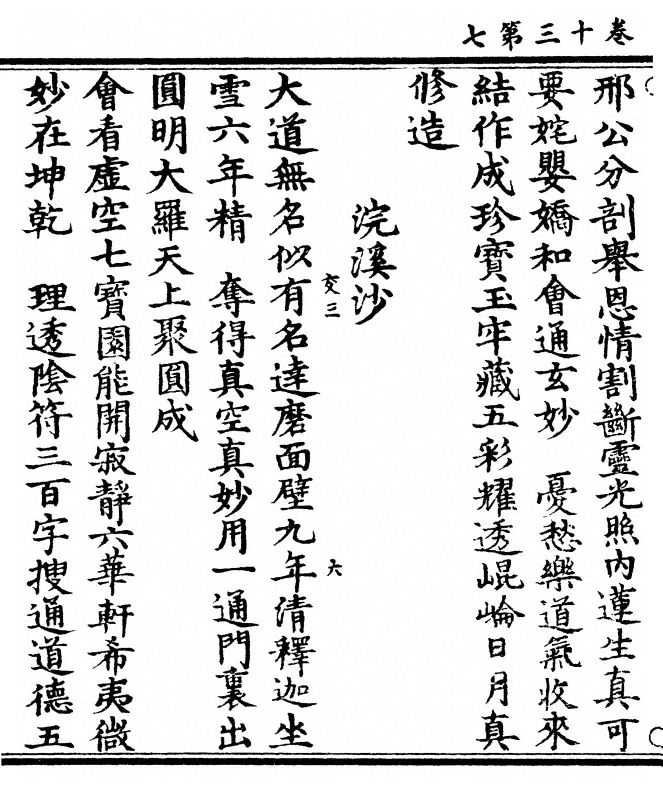 卷十三第七
邢公分剖舉恩情割斷靈光照內蓮生真可
要姹嬰嬌和會通玄妙　憂愁樂道氣收來
結作成珍寶玉牢藏五彩耀透崐崘日月真
修造
浣溪沙
大道無名似有名達磨面壁九年清釋迦坐
交三
六
雪六年精　奪得真空真妙用一通門裏出
圓明大羅天上聚圓成
會看虛空七寶園能開寂靜六華軒希夷微
妙在坤乾　理透陰符三百字搜通道德五